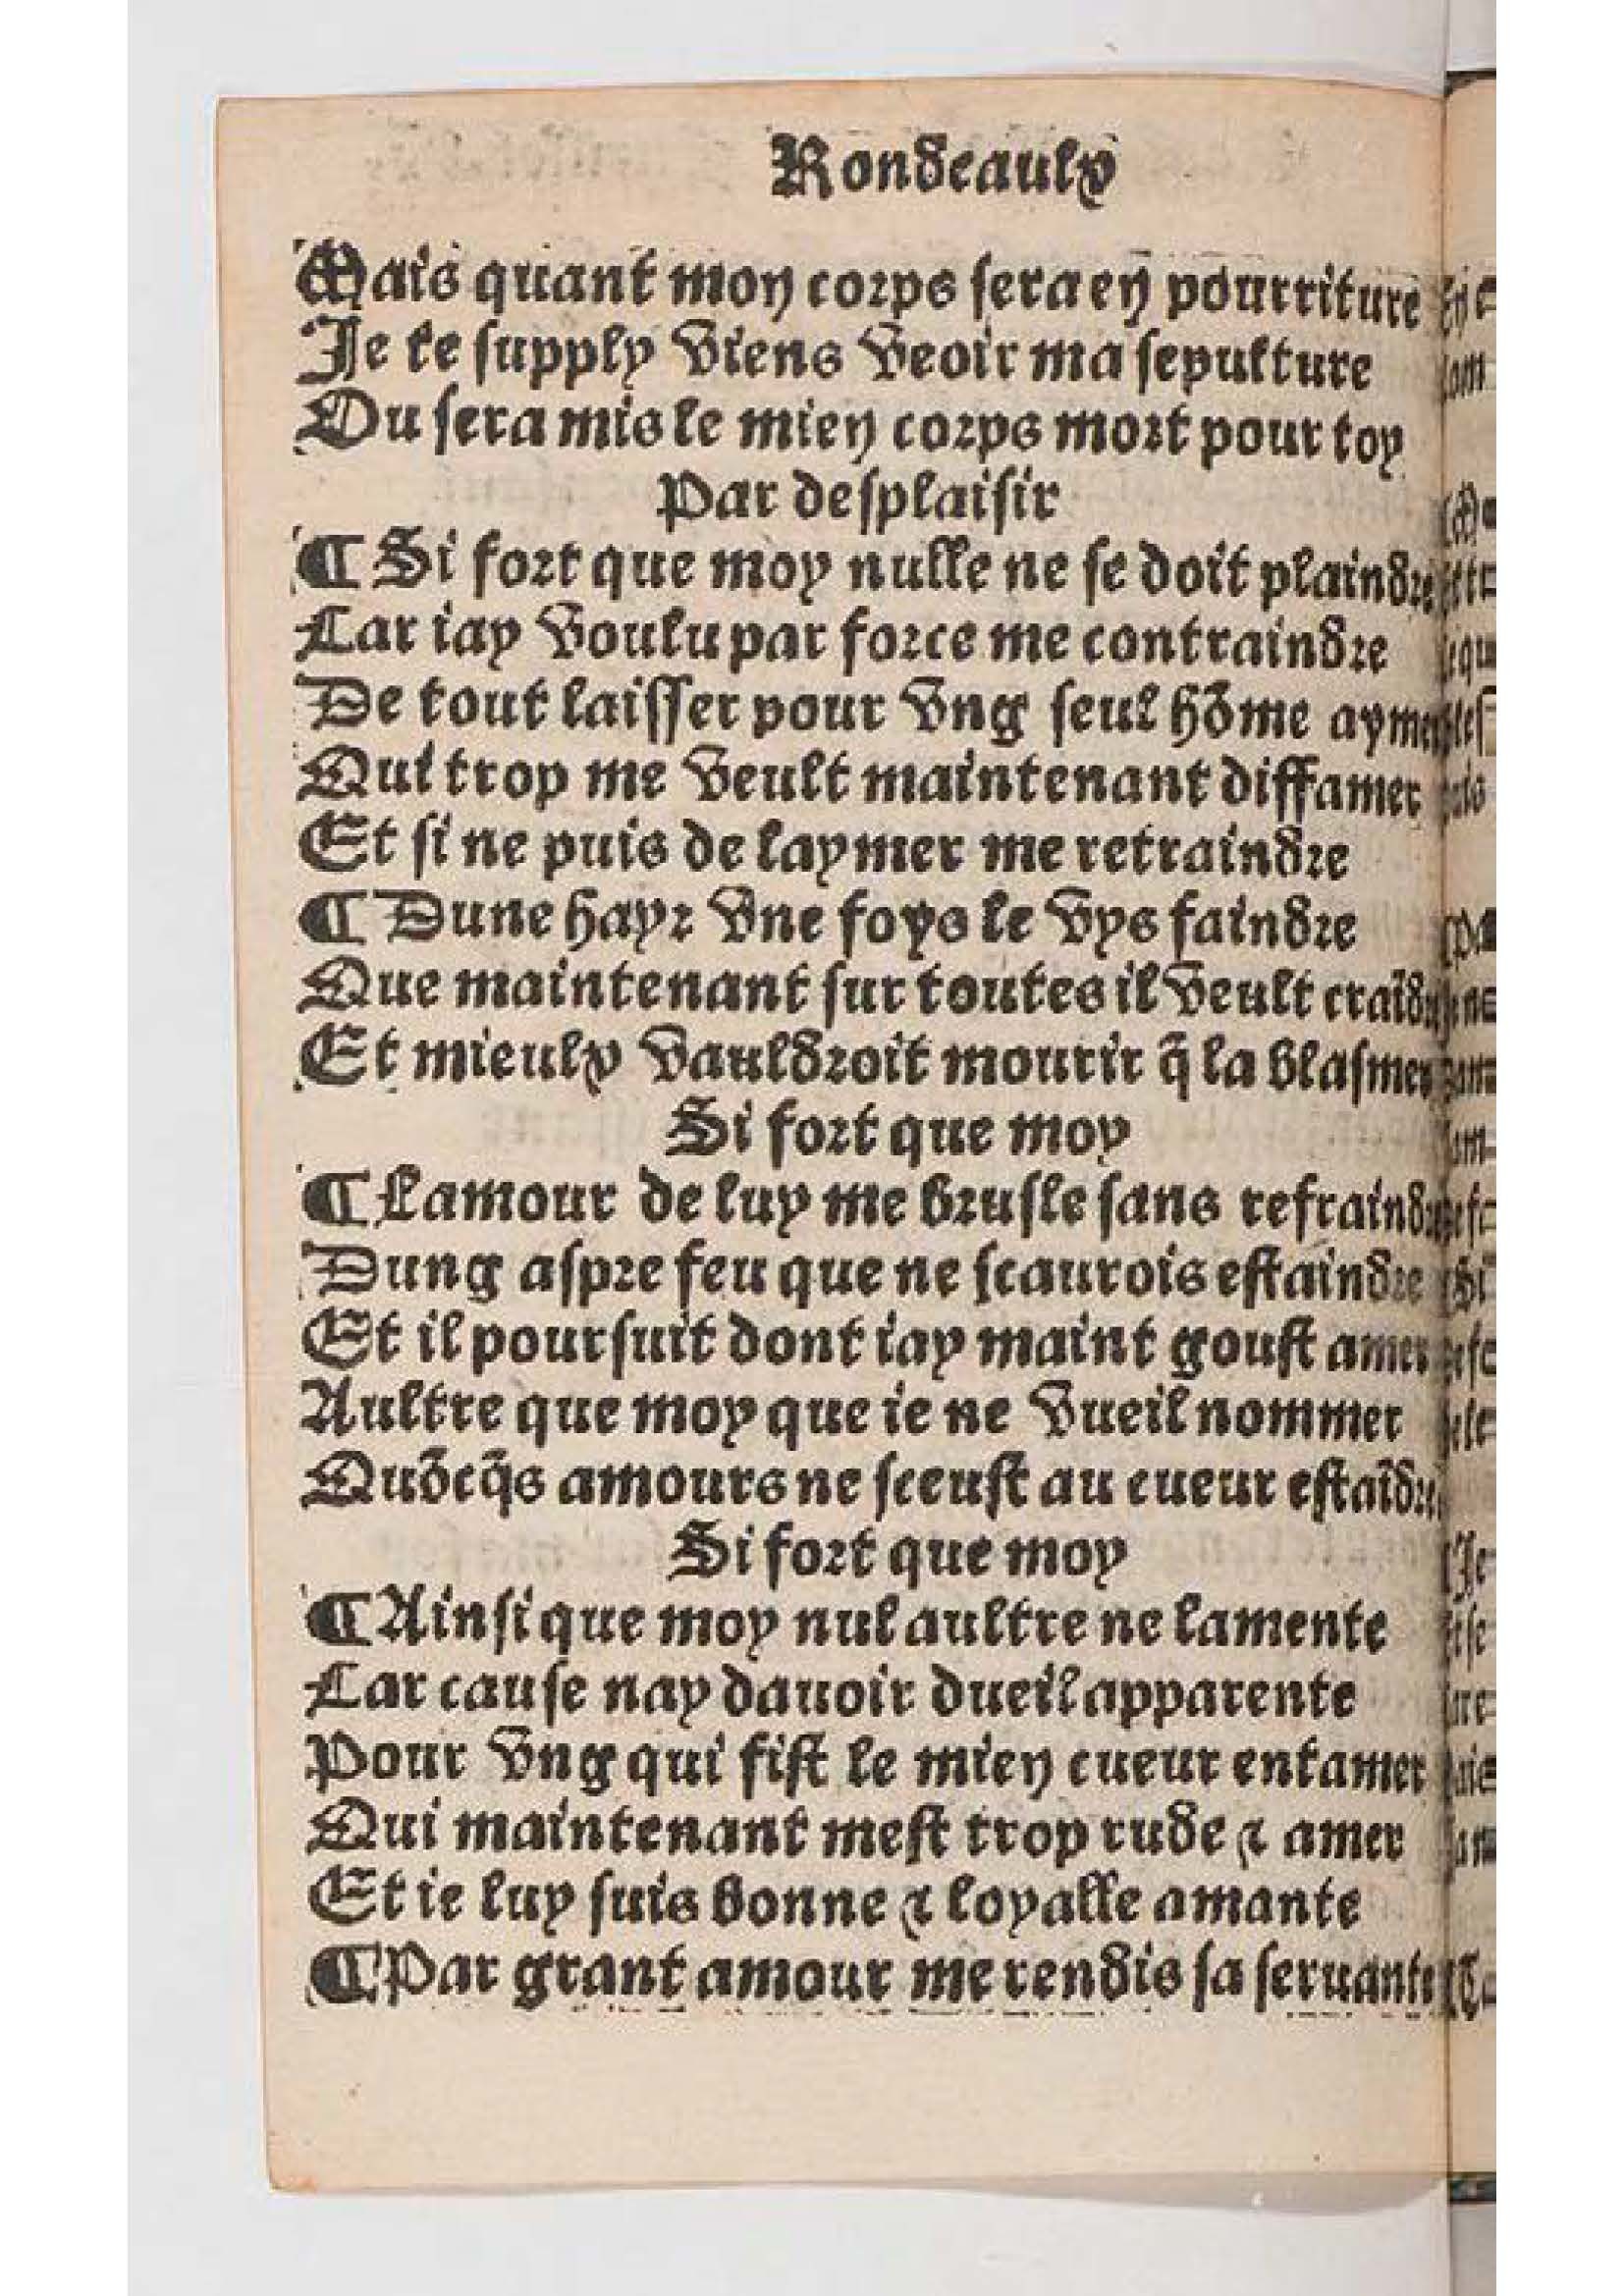 Rondeaulx
Mais quant mon corps sera en pourriture
Je te supply viens veoir ma sepulture
Ou sera mis le mien corps mort pour toy
Par desplaisir
¶ Si fort que moy nulle ne se doit plaindre
Car iay voulu par force me contraindre
De tout laisser pour vng seul hõme aymer
Qui trop me veult maintenant diffamer
Et si ne puis de laymer me retraindre
¶ Dune hayr vne foys le vys faindre
Que maintenant sur toutes il veult craĩdre
Et mieulx vauldroit mourir q̃ la blasmer
Si fort que moy
¶ Lamour de luy me brusle sans refraindre
Dung aspre feu que ne scaurois estaindre
Et il poursuit dont iay maint goust amer
Aultre que moy que ie ne vueil nommer
Quõcq̃s amours ne sceust au cueur estaĩdre
Si fort que moy
¶ Ainsi que moy nul aultre ne lamente
Car cause nay dauoir dueil apparente
Pour vng qui fist le mien cueur entamer
Qui maintenant mest trop rude ⁊ amer
Et ie luy suis bonne ⁊ loyalle amante
¶ Par grant amour me rendis sa seruante